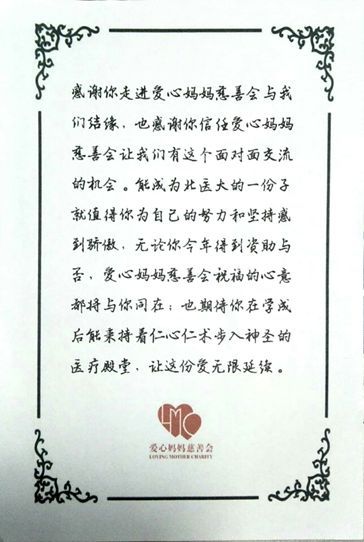 感谢你走进爱心妈妈慈善会与我
们结缘，也感谢你信任爱心妈妈
慈善会让我们有这个面对面交流
的机会。能成为北医大的一份子
就值得你为自己的努力和坚持感
到骄傲，无论你今年得到资助与
否，爱心妈妈慈善会祝福的心意
都将与你同在；也期待你在学成
后能秉持着仁心仁术步入神圣的
医疗殿堂，让这份爱无限延续。
LMC
爱心妈妈慈善会
LOVING MOTHER CHARITY